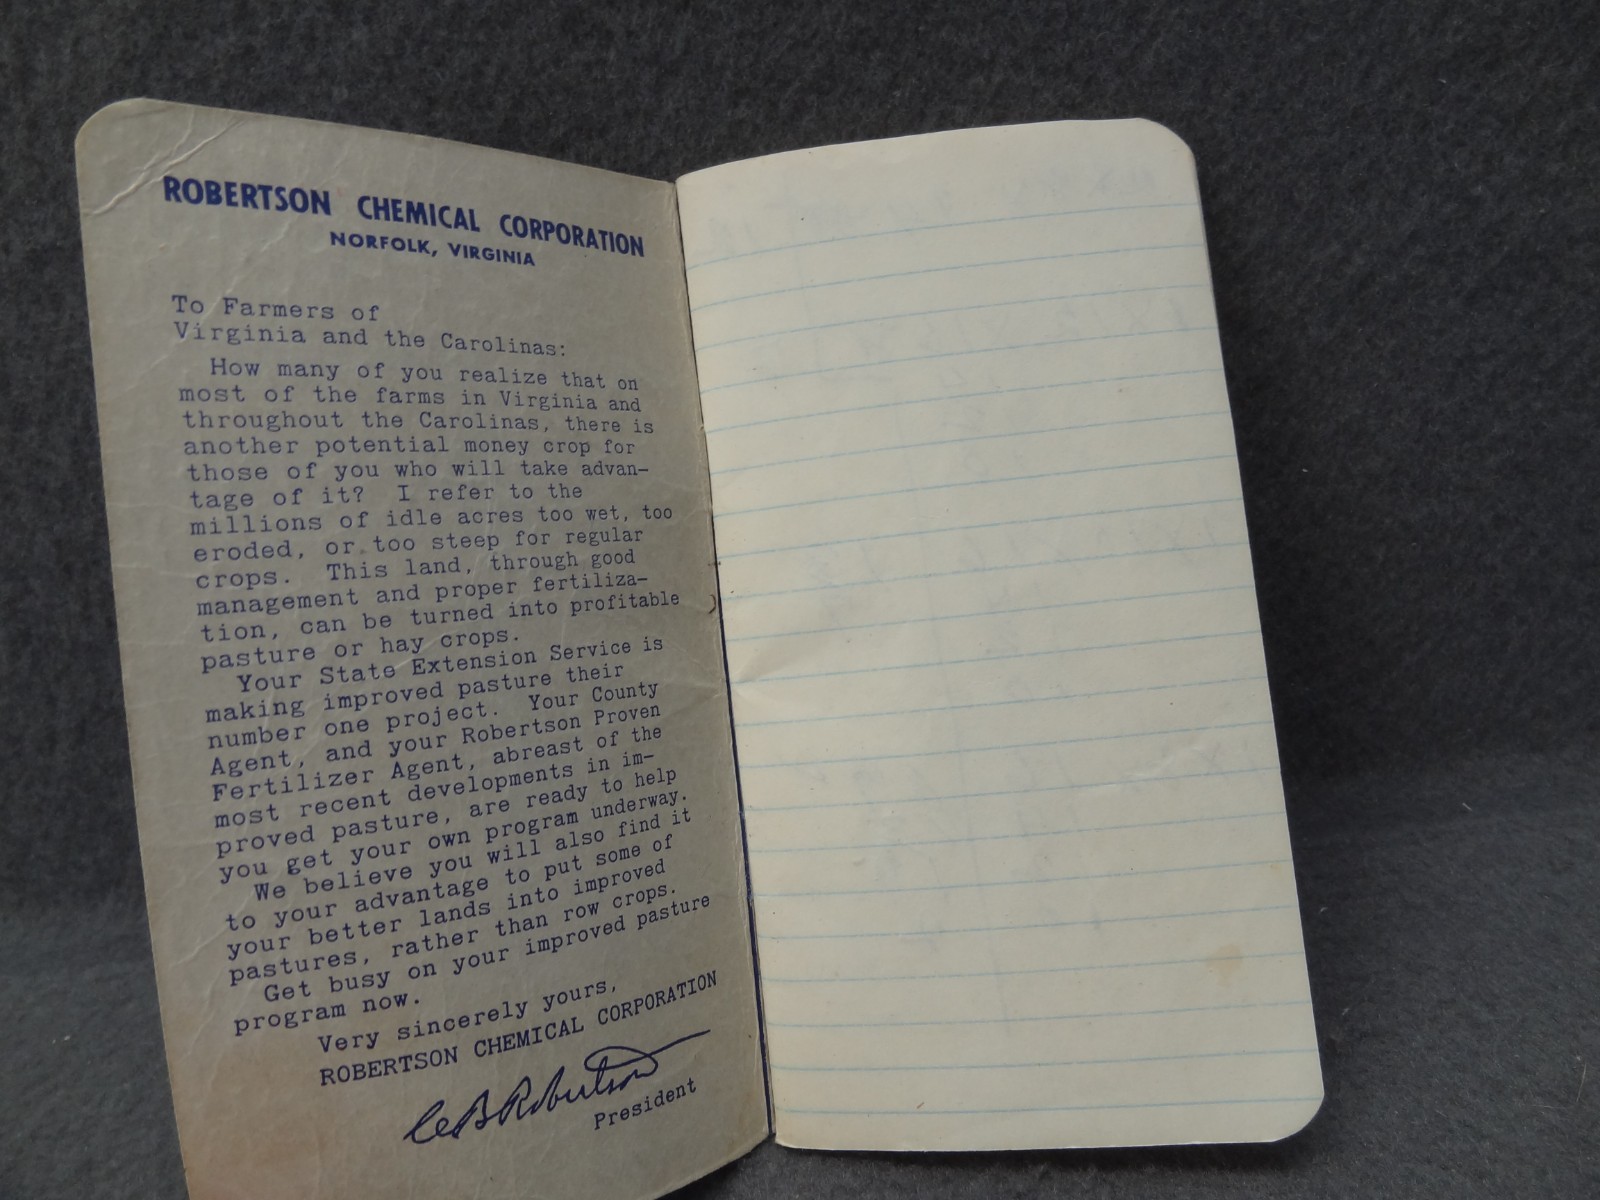 ROBERTSON CHEMICAL CORPORATION
NORFOLK, VIRGINIA
To Farmers of
Virginia and the Carolinas:
How many of you realize that on
most of the farms in Virginia and
throughout the Carolinas, there is
another potential money crop for
those of you who will take advan-
tage of it? I refer to the
millions of idle acres too wet, too
eroded, or too steep for regular
crops. This land, through good
management and proper fertiliza-
tion, can be turned into profitable
pasture or hay crops.
Your State Extension Service is
making improved pasture their
number one project. Your County
Agent, and your Robertson Proven
Fertilizer Agent, abreast of the
most recent developments in im-
proved pasture, are ready to help
you get your own program underway.
We believe you will also find it
to your advantage to put some of
your better lands into improved
pastures, rather than row crops.
Get busy on your improved pasture
program now.
Very sincerely yours,
ROBERTSON CHEMICAL CORPORATION
Robertson
President